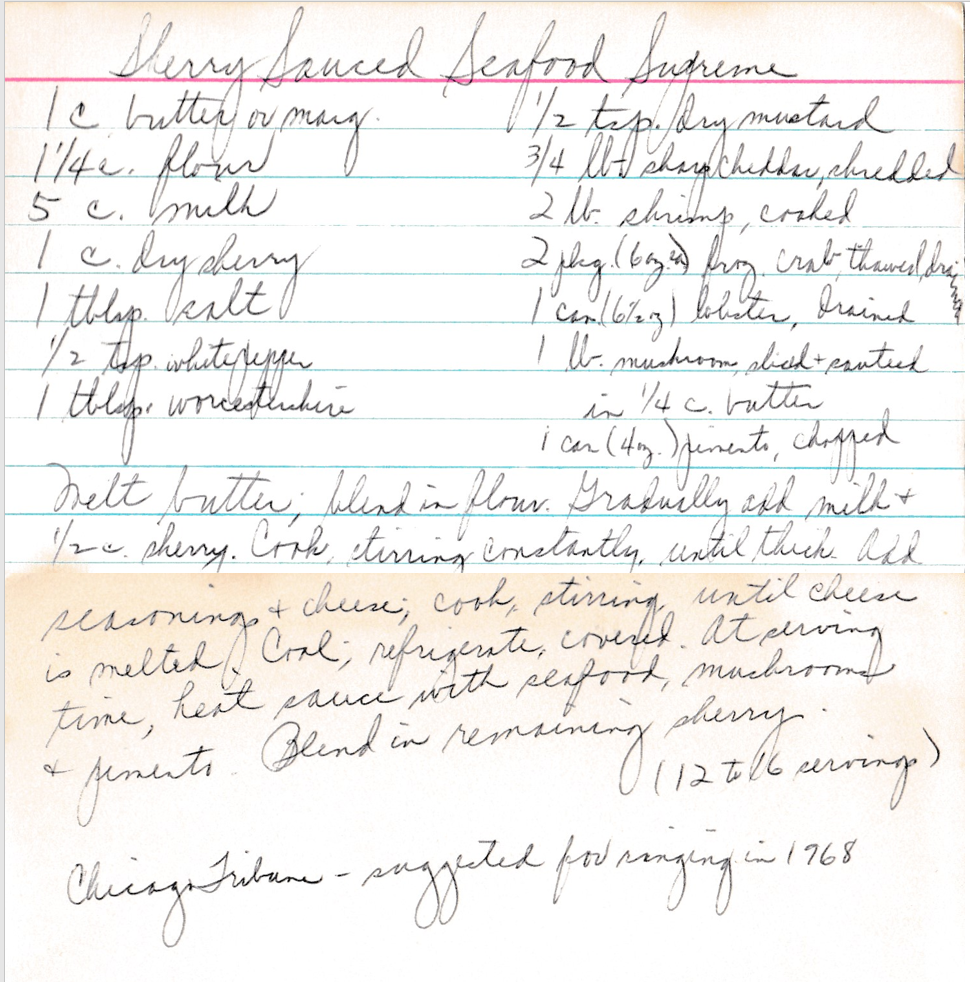 Sherry Sauced Seafood Supreme
1 c. butter or marg.
1 1/4 c. flour
5 c. milk
1 c. dry sherry
1 tblsp. salt
1/2 tsp. white pepper
1 tblsp. worcestershire
1/2 tsp. dry mustard
3/4 lb. sharp cheddar, shredded
2 lb. shrimp, cooked
2 pkg. (6 oz. ea) froz. crab, thawed, drained
1 can (6 1/2 oz) lobster, drained
1 lb. mushroom, sliced + sauteed
in 1/4 c. butter
1 can (4 oz.) pimento, chopped
Melt butter; blend in flour. Gradually add milk +
1/2 c. sherry. Cook, stirring constantly, until thick. Add
seasonings + cheese; cook, stirring, until cheese
is melted. Cool; refrigerate, covered. At serving
time, heat sauce with seafood, mushrooms
+ pimento. Blend in remaining sherry.
(12 to 16 servings)
Chicago Tribune - suggested for ringing in 1968